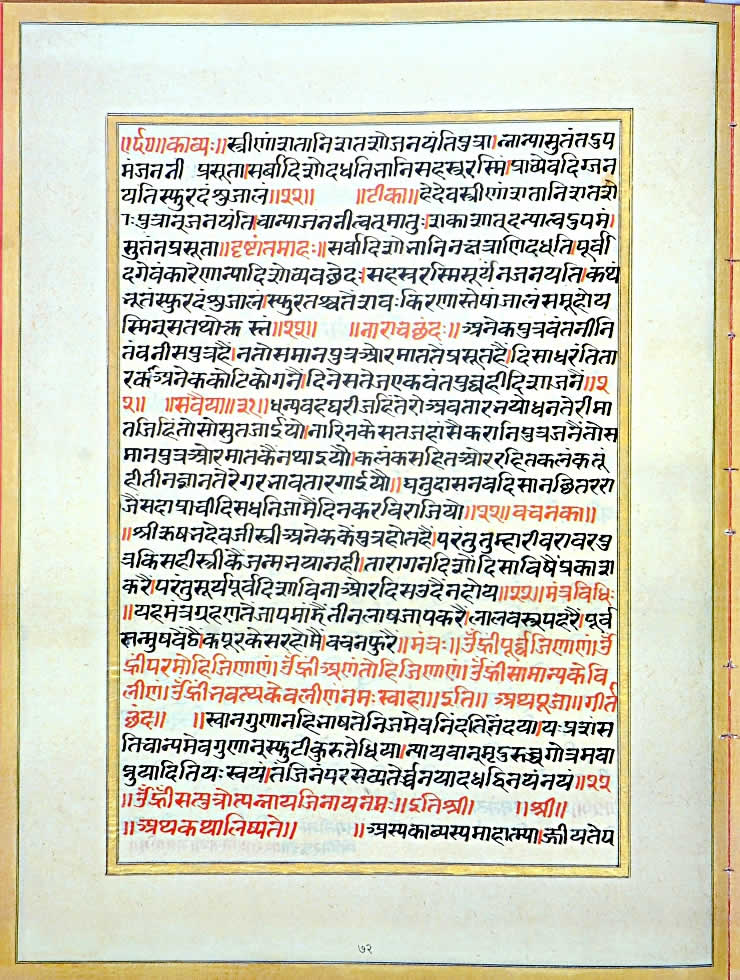 ॥र्द्ध॥काव्यः॥स्त्रीणांशतानिशतशोजनयंतिपुत्रा।न्नान्यासुतंतऽपु
मंजननी प्रसूता।सर्वादिशोदधतिनानिसहस्त्ररस्मिं।प्राच्येवदिग्जन
यतिस्फुरदंशुजालं॥२२॥ ॥टीका॥हेदेवस्त्रीणांशतानिशतशो
पुत्रान्जनयंति।वान्याजननीत्वत्मातुः।सकाशात्
सुतंनप्रसूता॥दृष्टांतमाहः॥सर्वादिशोनानिनक्षत्राणिदधति।पूर्वा
दगेवंकारेणान्यादिशोव्यवछेदः।सहस्त्ररस्मिसूर्यंनजनयति।कथं
नूतंस्फुरदंशुजालं।स्फुरतश्चतेंशवःकिरणास्तेषाजालंसमूहोय
स्मिन्सतथोक्त स्तं॥२२॥ ॥नाराचछंदः॥अनेकपुत्रवंतनीनि
तंवनीसपुत्रहैं।नतोसमानपुत्रऔरमाततैंप्रसूतहैं।दिसाधरंतिता
रकंअनेककोटिकोगनै।दिनेसतेजएकवंतपुर्व्वहीदिशाजनें॥२
२॥ ॥सवैया॥३१॥धन्यवहघरीजहिंतेरोअवतारनयोधनतेरीमा
तजिहिंतोसोसुतजाईयो।नारिनकेसतजहांसैकरानिपुत्रजनैंतोस
मानपुत्रऔरमातकैंनथाइयौ।कलंकसहितऔररहितकलंकतूं
हीतीनज्ञानतेरेगरनावतारगाईयौ॥घनुदासनवदिसाननछितररा
जैंसदाप्राचीदिसधतिजामैंदिनकरविराजियो॥२२॥वचनका॥
॥श्रीऋषनदेवजीस्त्रीअनेककैंपुत्रहोतहैं।परंतुतुम्हारीवरावरपु
त्रकिसहीस्त्रीकैंजन्मनयानही।तारागनदिशोंदिसाविषैंप्रकाश
करैं।परंतुसूर्यपूर्वदिशाविनाऔरदिसउदैंनहोय॥२२॥मंत्रविधिः
॥यहमंत्रग्रहणतैंजापमांहैंतीनलाषजापकरैं।लालवस्त्रपहरैं।पूर्व
सन्मुषवैठै।कपूरकेसरहोमैं।वचनफुरै॥मंत्रः॥ॐह्रींपूर्व्वजिणाणं।ॐ
ह्रींपरमोहिजिणाणं।ॐह्रींअणंतोहिजिणाणं।ॐह्रींसामान्यकेवि
लीणं।ॐह्रींनवत्थकेवलीणंनमःस्वाहा॥इति॥ अथपूजा॥गीत
छंद॥ ॥स्वानगुणानहिनाषतेनिजमेवनिंदतिनिंदया।यःप्रशंस
तिवान्यमेवगुणान्स्फुटीकुरुतेधिया।
प्नुयादितियःस्वयं।तंजिनंपरसेव्य॥२२
॥ॐह्रींसत्पुत्रोत्पन्नायजिनायनमः॥इतिश्री॥ ॥श्री॥
॥अथकथालिष्यते॥ ॥अस्यकाव्यस्यमाहात्म्या।श्रीयतेप
७२